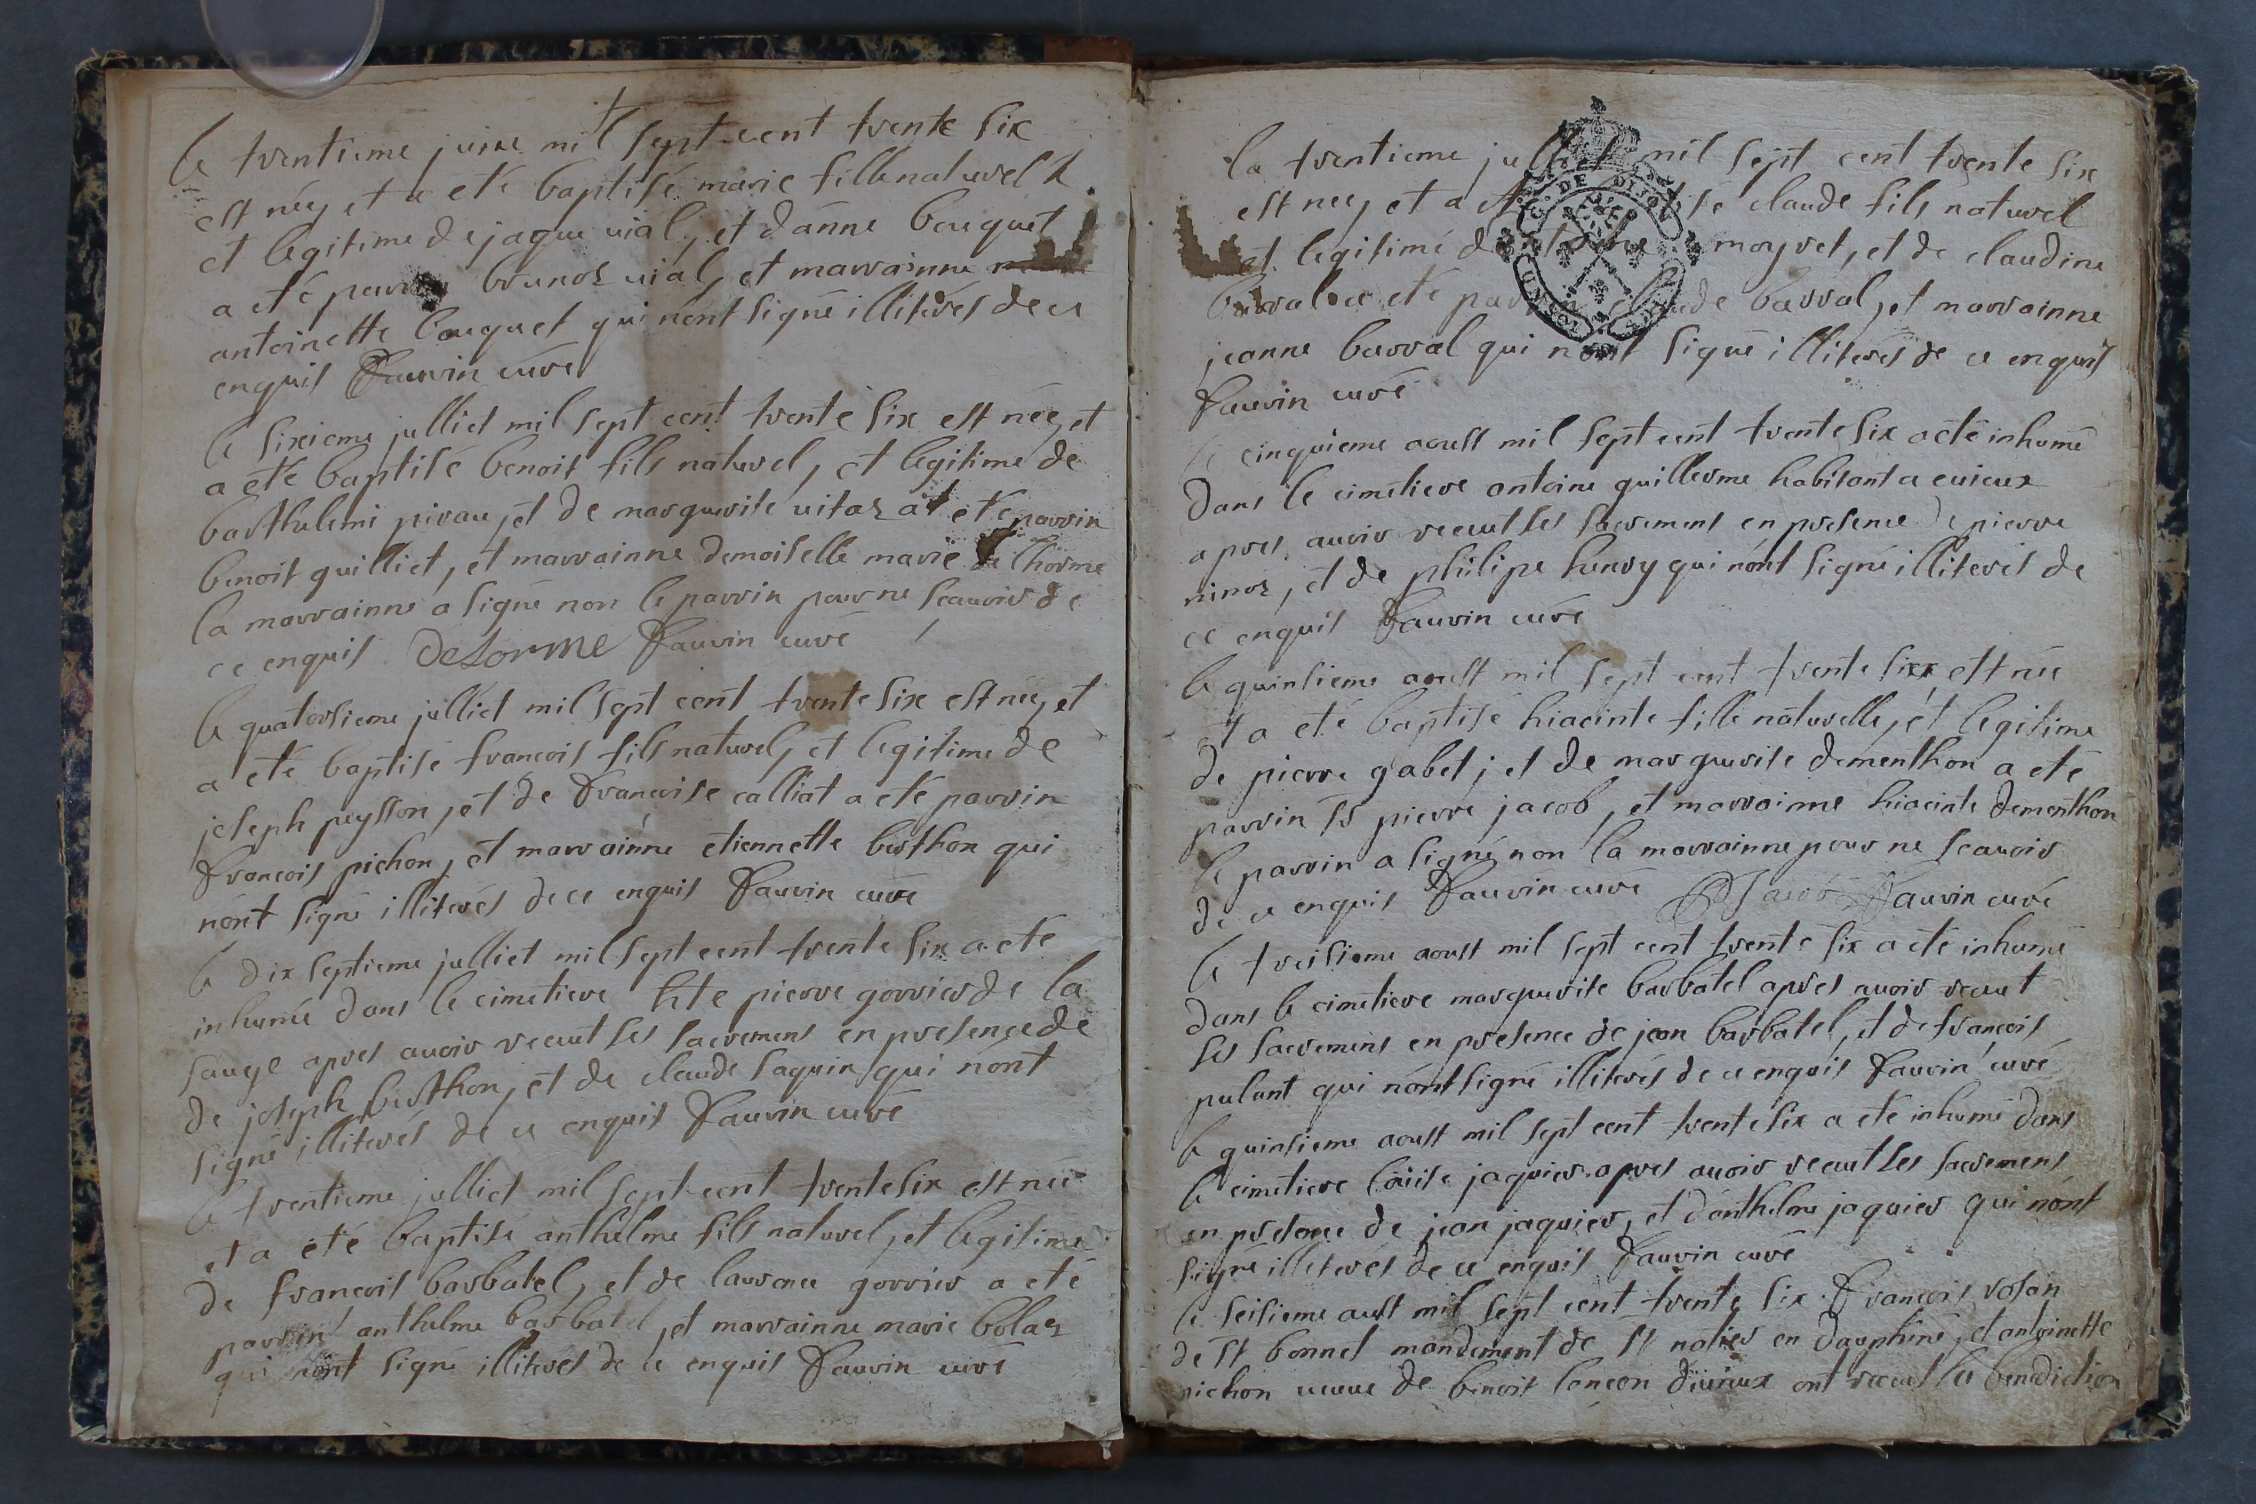 le trentieme juin mil sept cent trente six
est néé, et a eté baptisé marie fille naturel
et legitime de jaque uial, et d'anne bouquet
a eté parrin brunos uial, et marrainne
antoinette bouquet qui n'ont signé illiterés de ce
enquis Fauvin curé
le sixieme julliet mil sept cent trente six est néé, et
a eté baptisé benoit fils naturel, et legitime de
barthulemi pirau, et de marguerite uitoz at eté parrin
benoit quilliet, et marrainne demoiselle marie de lhorme
la marrainne a signé non le parrin pour ne scauoir de
ce enquis DeLorme Fauvin curé
le quatorsieme julliet mil sept cent trente six est néé, et
a eté baptisé francois fils naturel, et legitime de
joseph peysson, et de Francoise calliat a eté parrin
Francois pichon, et marrainne etiennette berthon qui
n'ont signé illiterés de ce enquis Fauvin curé
le dix septieme julliet mil sept cent trente six a eté
inhumé dans le cimetiere hte pierre gorrier de la
sauge apres auoir receut ses sacremens en presence de
de joseph berthon, et de claude saquin qui n'ont
signé illiterés de ce enquis Fauvin curé
le trentieme julliet mil sept cent trente six est néé
et a eté baptisé anthelme fils naturel, et legitime
de francois barbatel, et de laurance gorrier a eté
parrin anthelme barbatel, et marrainne marie bolaz
qui n'ont signé illiterés de ce enquis Fauvin curé
la trentieme julliet mil sept cent trente six
est neé, et a eté baptisé claude fils naturel
et legitimé de moyret, et de claudine
barral a eté parrin claude barral, et marrainne
jeanne barral qui n'ont signé illiterés de ce enquis
Fauvin curé
le cinquieme aoust mil sept cent trente six a eté inhumé
dans le cimetiere antoine guillerme habitant a cuieux
apres auoir receut ses sacremens en presence de pierre
ninoz, et de philipe henry qui n'ont signé illiterés de
ce enquis Fauvin curé
le quinsieme aoust mil sept cent trente six est née
et a eté baptisé hiacinte fille naturelle, et legitime
de pierre gabet, et de marguerite dementhon a eté
parrin sr pierre jacob, et marrainne hiacinte dementhon
le parrin a signé non la marrainne pour ne scauoir
de ce enquis Fauvin curé Jacob Fauvin curé
le treisieme aoust mil sept cent trente six a eté inhumé
dans le cimetiere marguerite barbatel apres auoir receut
ses sacremens en presence de jean barbatel, et de francois
pulant qui n'ont signé illiterés de ce enquis Fauvin curé
le quinsieme aoust mil sept cent trente six a eté inhumé dans
le cimetiere loüise jaquier apres auoir receut ses sacremens
en presence de jean jaquier, et d'anthelme jaquier qui n'ont
signé illiterés de ce enquis Fauvin curé
le seisieme aust mil sept cent trente six Francois rosan
de st bonnet mandement de st en dauphiné, et antoinette
pichon ueuue de benoit lancon ont receut la benediction